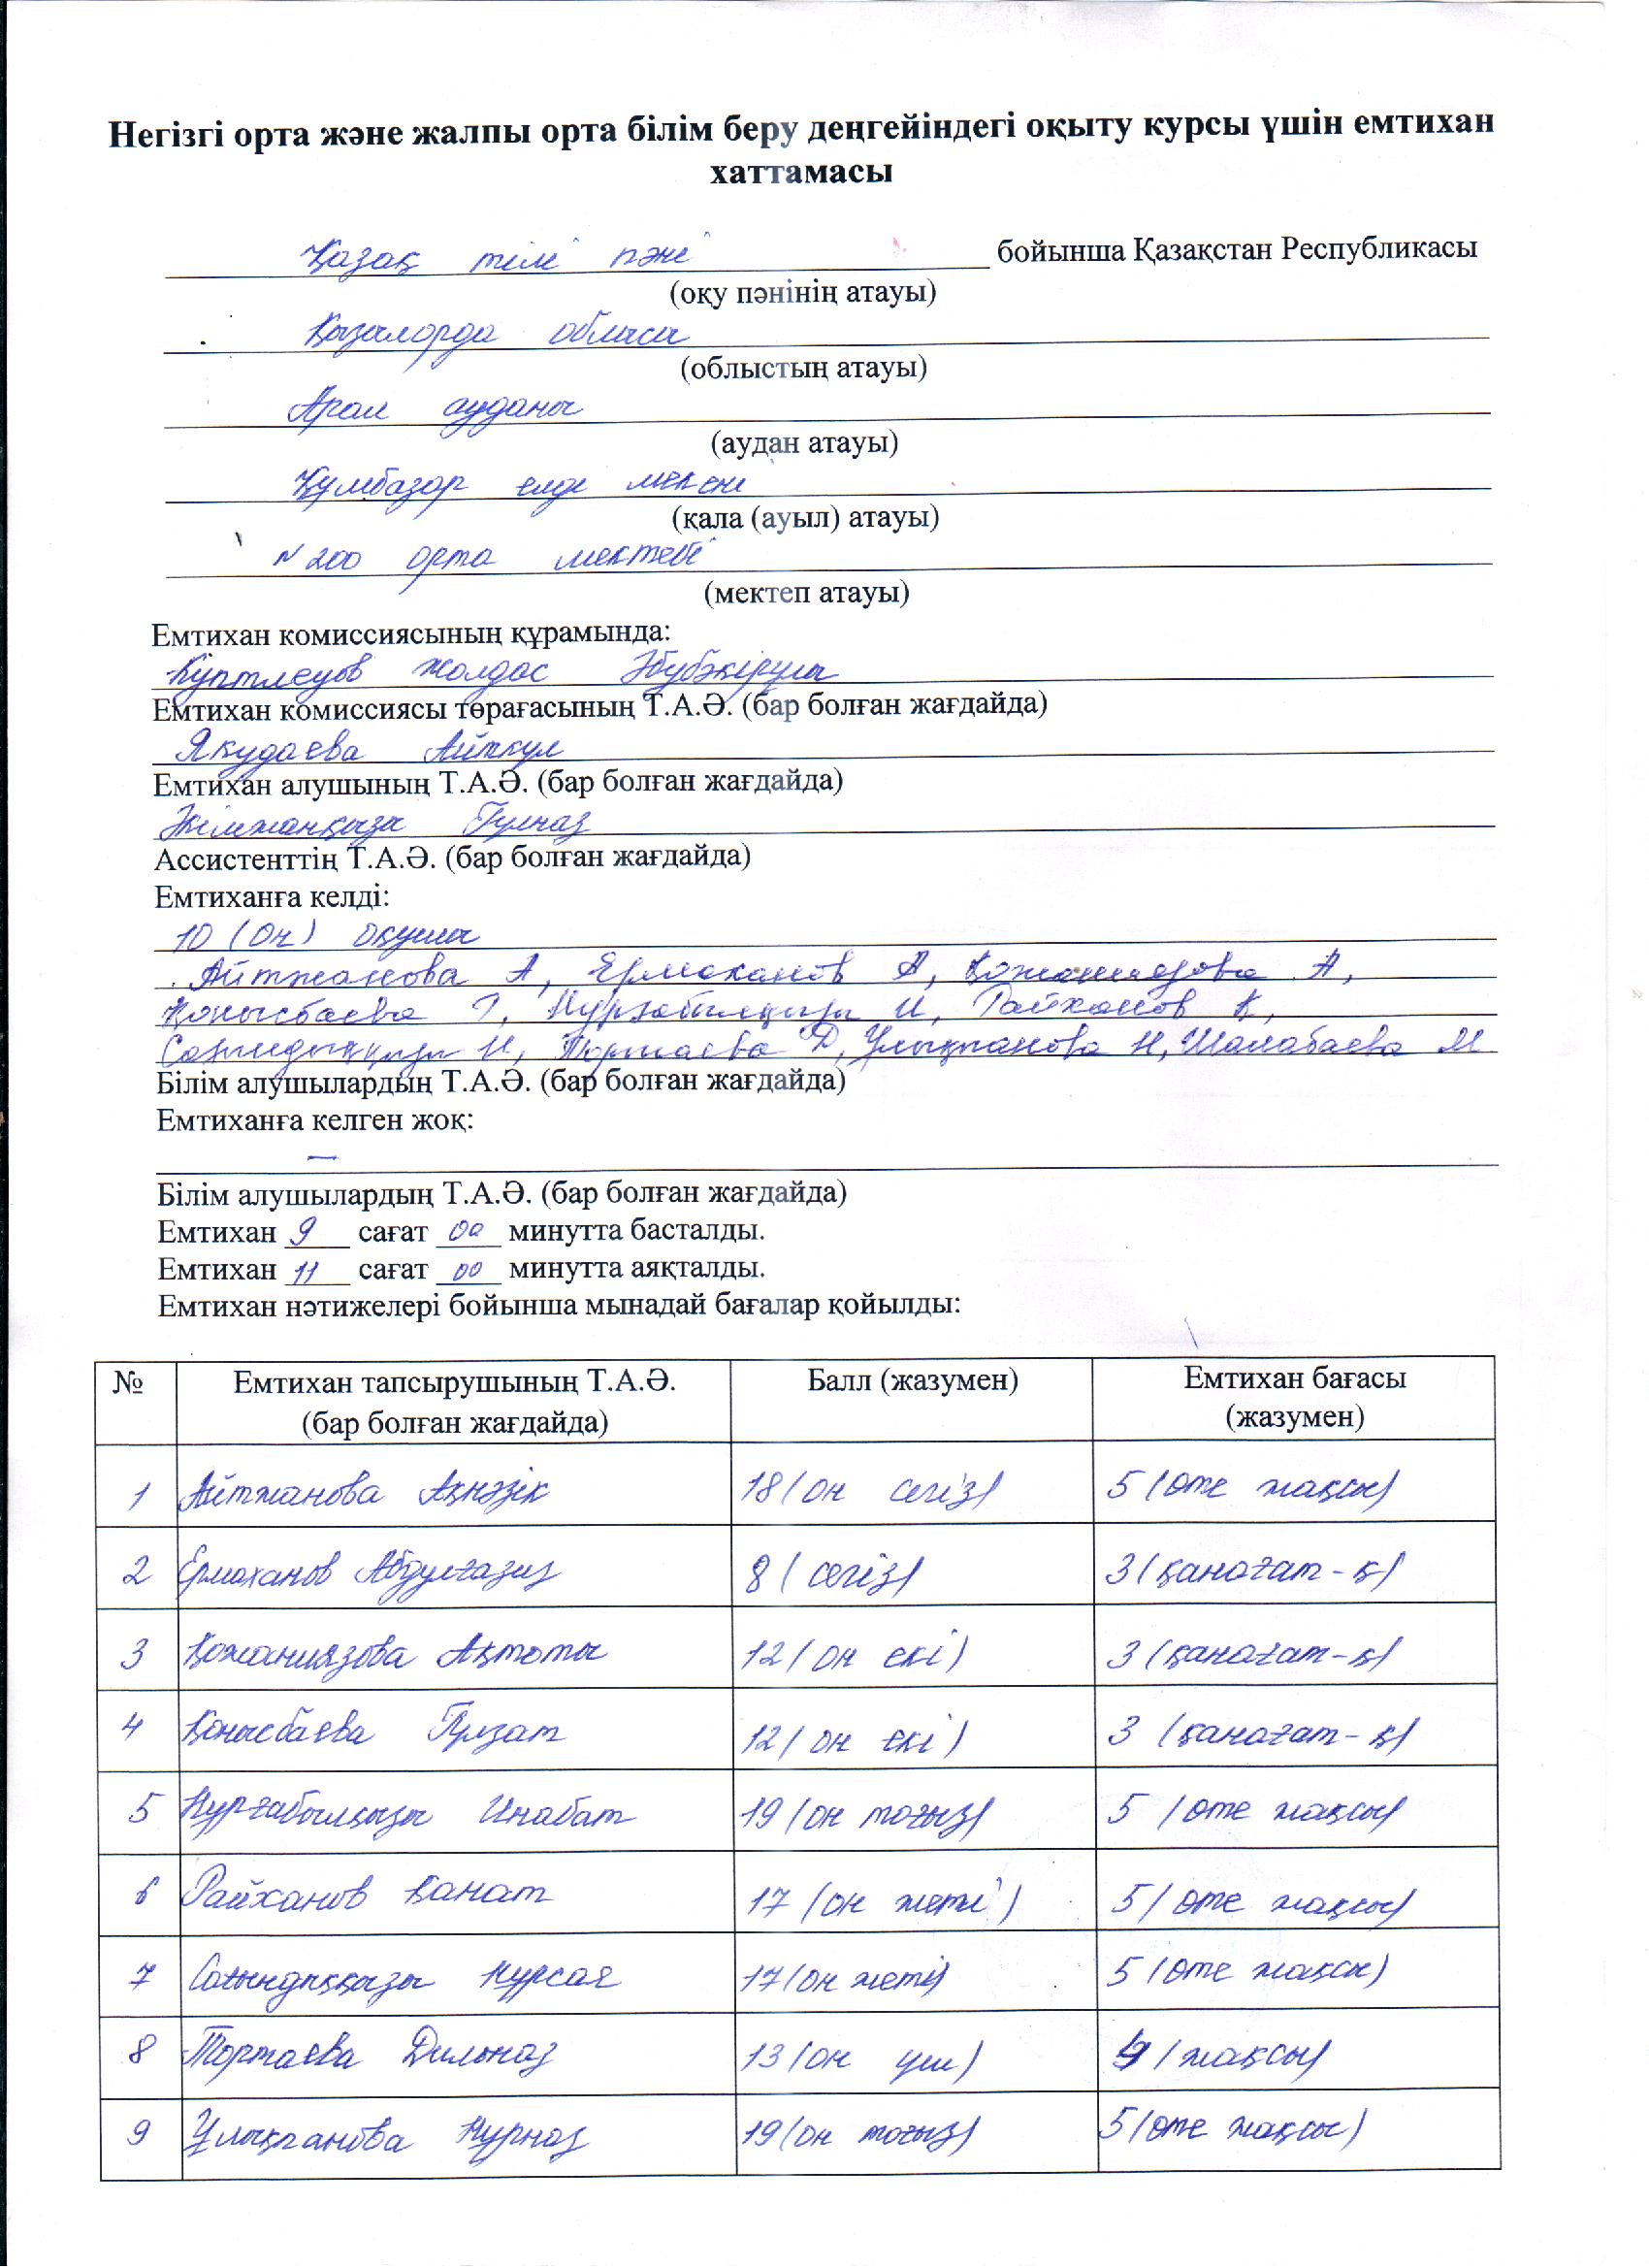 Негізгі орта және жалпы орта білім беру деңгейіндегі оқыту курсы үшін емтихан
хаттамасы
Қазақ тілі пәні бойынша Қазақстан Республикасы
(оқу пәнінің атауы)
Қызылорда облысы
(облыстың атауы)
Арал ауданы
(аудан атауы)
Құмбазар елді мекені
(қала (ауыл) атауы)
№ 200 орта мектебі
(мектеп атауы)
Емтихан комиссиясының құрамында:
Күптлеуов Жолдас Әбубәкірұлы
Емтихан комиссиясы төрағасының Т.А.Ә. (бар болған жағдайда)
Якудаева Айткул
Емтихан алушының Т.А.Ә. (бар болған жағдайда)
Әкімжанқызы Гулназ
Ассистенттің Т.А.Ә. (бар болған жағдайда)
Емтиханға келді:
10 (Он) оқушы
Айтжанова А, Ермаханов А, Қожаниязова А,
Қонысбаева Г, Нұрғабылқызы И, Райханов Қ,
Сағындыққызы Н, Тортаева Д, Ұлықпанова Н, Шалабаева М
Білім алушылардың Т.А.Ә. (бар болған жағдайда)
Емтиханға келген жоқ:
—
Білім алушылардың Т.А.Ә. (бар болған жағдайда)
Емтихан 9 сағат 00 минутта басталды.
Емтихан 11 сағат 00 минутта аяқталды.
Емтихан нәтижелері бойынша мынадай бағалар қойылды:
№ Емтихан тапсырушының Т.А.Ә. (бар болған жағдайда) Балл (жазумен) Емтихан бағасы (жазумен)
1 Айтжанова Ақнәзік 18 (он сегіз) 5 (өте жақсы)
2 Ермаханов Абдулғазиз 8 (сегіз) 3 (қанағат-қ)
3 Қожаниязова Ақтоты 12 (он екі) 3 (қанағат-қ)
4 Қонысбаева Гүлзат 12 (он екі) 3 (қанағат-қ)
5 Нұрғабылқызы Инабат 19 (он тоғыз) 5 (өте жақсы)
6 Райханов Қанат 17 (он жеті) 5 (өте жақсы)
7 Сағындыққызы Нұрсая 17 (он жеті) 5 (өте жақсы)
8 Тортаева Дильназ 13 (он үш) 4 (жақсы)
9 Ұлықпанова Нұрназ 19 (он тоғыз) 5 (өте жақсы)